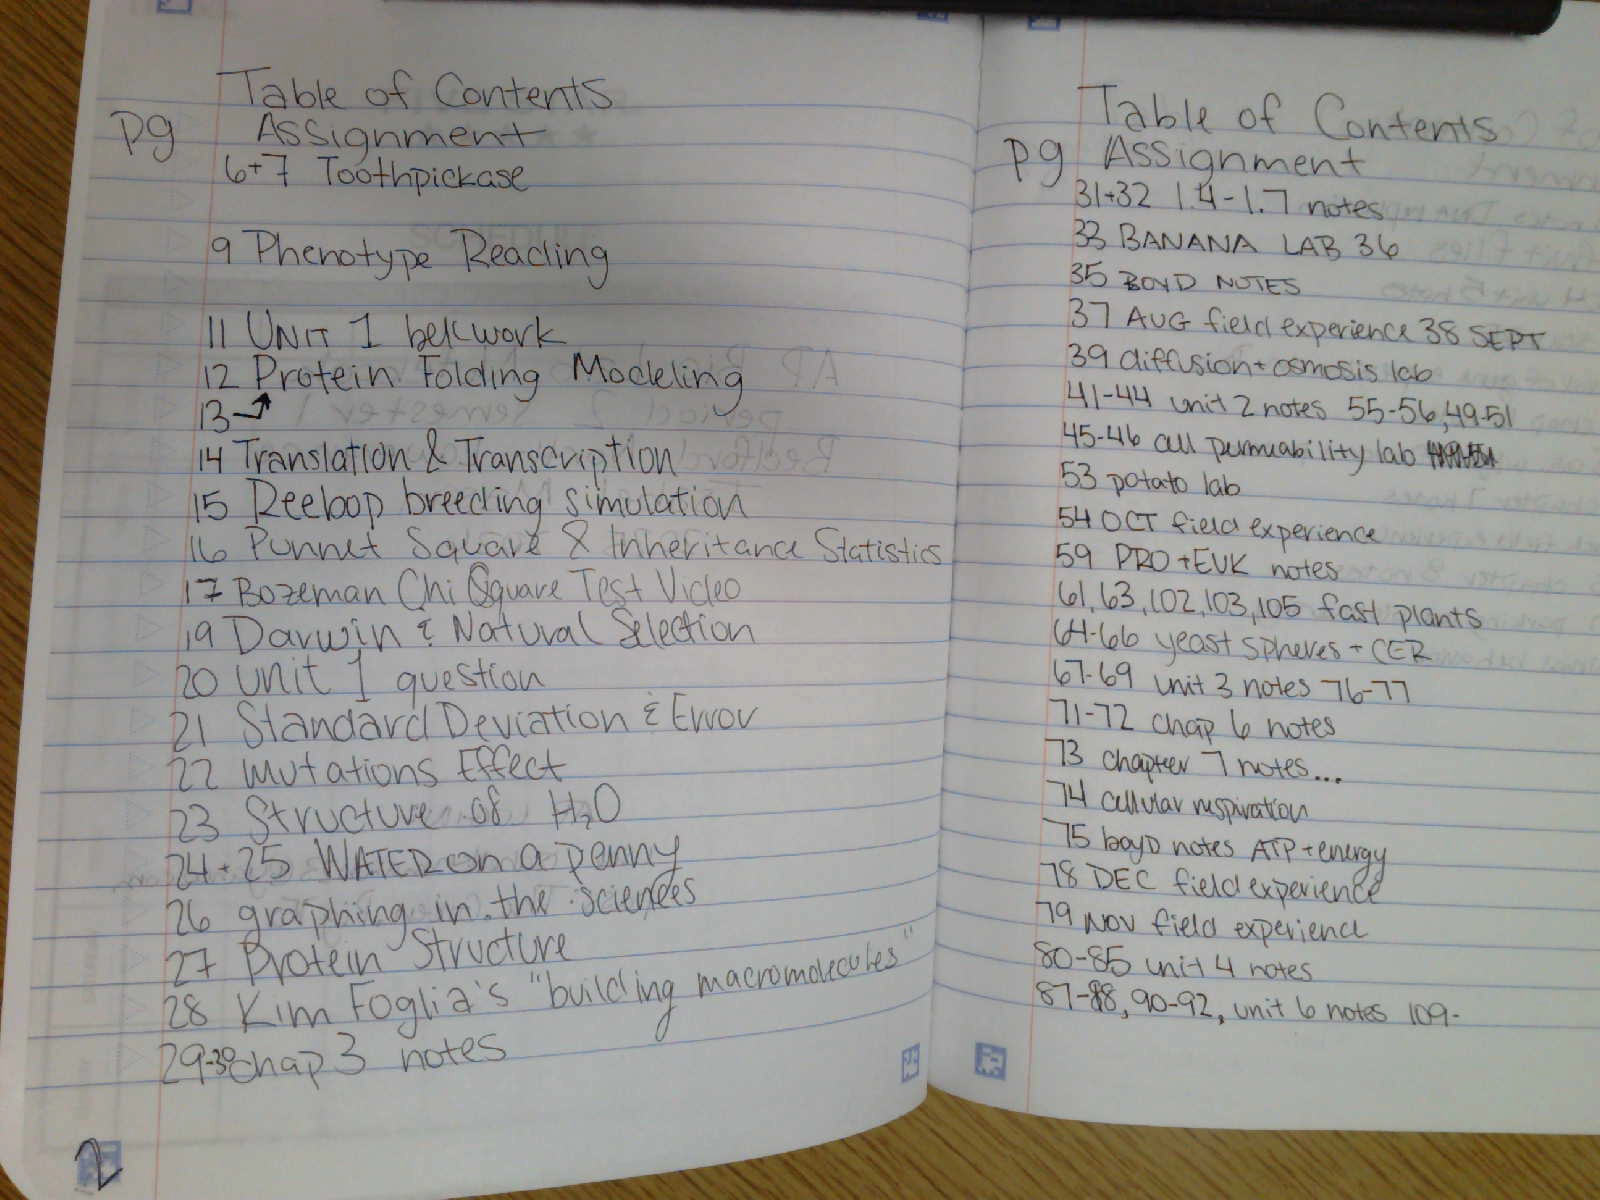 Table of Contents
pg Assignment
6+7 Toothpickase
9 Phenotype Reading
11 UNIT 1 bellwork
12 Protein Folding Modeling
13
14 Translation & Transcription
15 Reebop breeding simulation
16 Punnet Square & Inheritance Statistics
17 Bozeman Chi Square Test Video
19 Darwin & Natural Selection
20 Unit 1 question
21 Standard Deviation & Error
22 Mutations Effect
23 Structure of H2O
24+25 WATER on a penny
26 graphing in the sciences
27 Protein Structure
28 Kim Foglia's "building macromolecules"
29-30 chap 3 notes
2
Table of Contents
pg Assignment
31+32 1.4-1.7 notes
33 BANANA LAB 36
35 BOYD NOTES
37 AUG field experience 38 SEPT
39 diffusion + osmosis lab
41-44 unit 2 notes 55-56, 49-51
45-46 cell permeability lab
53 potato lab
54 OCT field experience
59 PRO + EUK notes
61, 63, 102, 103, 105 fast plants
64-66 yeast spheres + CER
67-69 unit 3 notes 76-77
71-72 chap 6 notes
73 chapter 7 notes...
74 cellular respiration
75 boyd notes ATP + energy
78 DEC field experience
79 NOV field experience
80-85 unit 4 notes
87-88, 90-92, unit 6 notes 109-